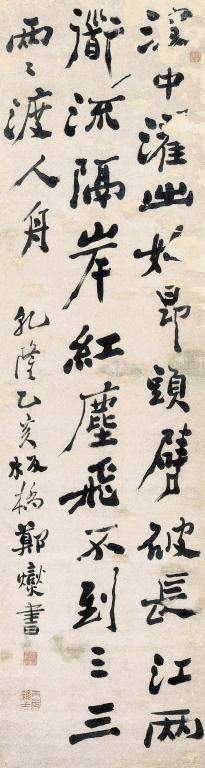 中濯出如昂頭劈破長江兩
道流隔岸紅塵飛不到三三
兩〻渡人舟
乾隆乙亥板橋鄭燮書